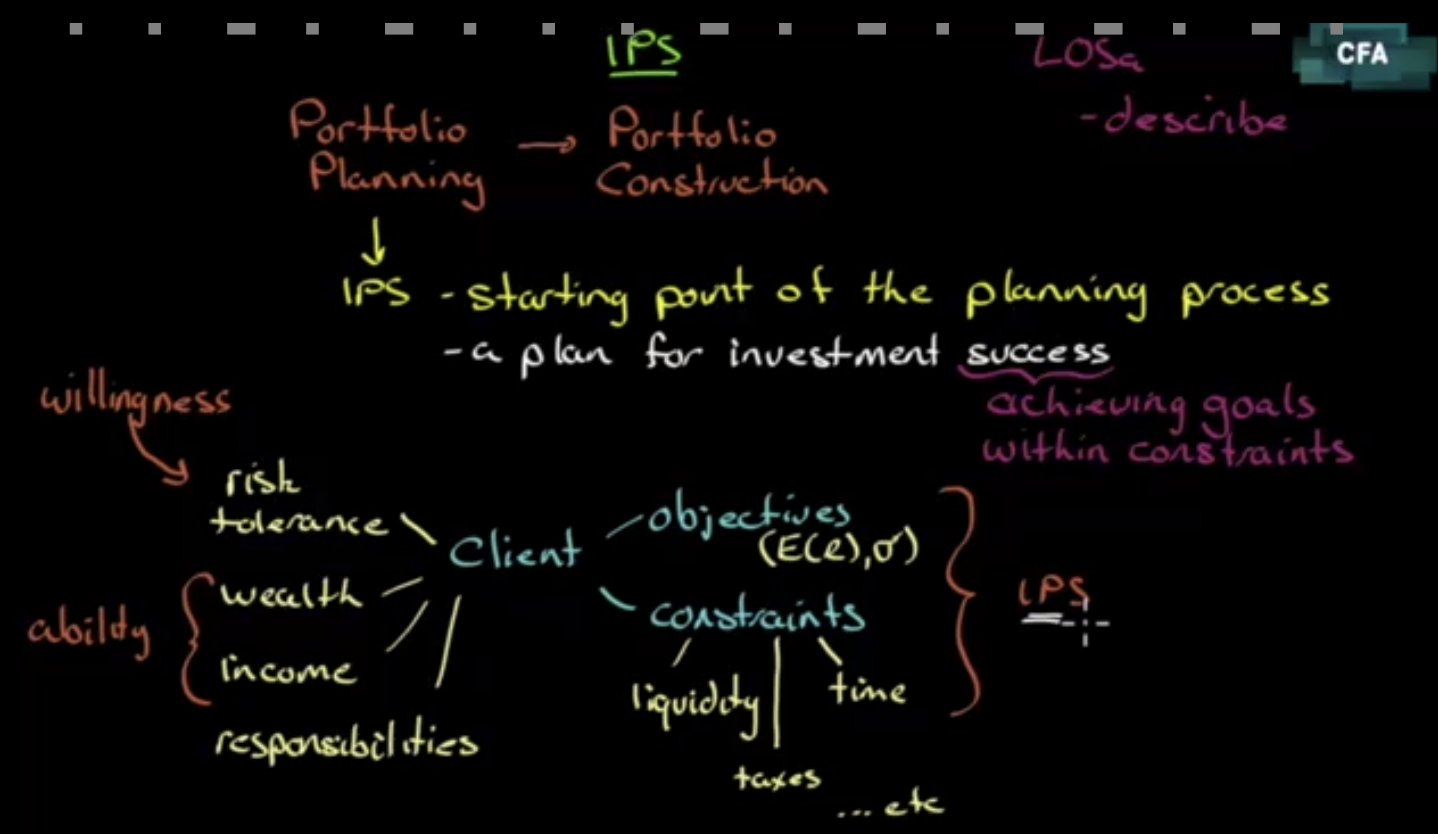 IPS
LOSa
CFA
- describe
Portfolio Planning → Portfolio Construction
IPS - starting point of the planning process
- a plan for investment success
achieving goals
within constraints
willingness
risk
tolerance
Client
objectives
(E(R), σ)
wealth
ability
income
responsibilities
constraints
liquidity
time
taxes
... etc
IPS